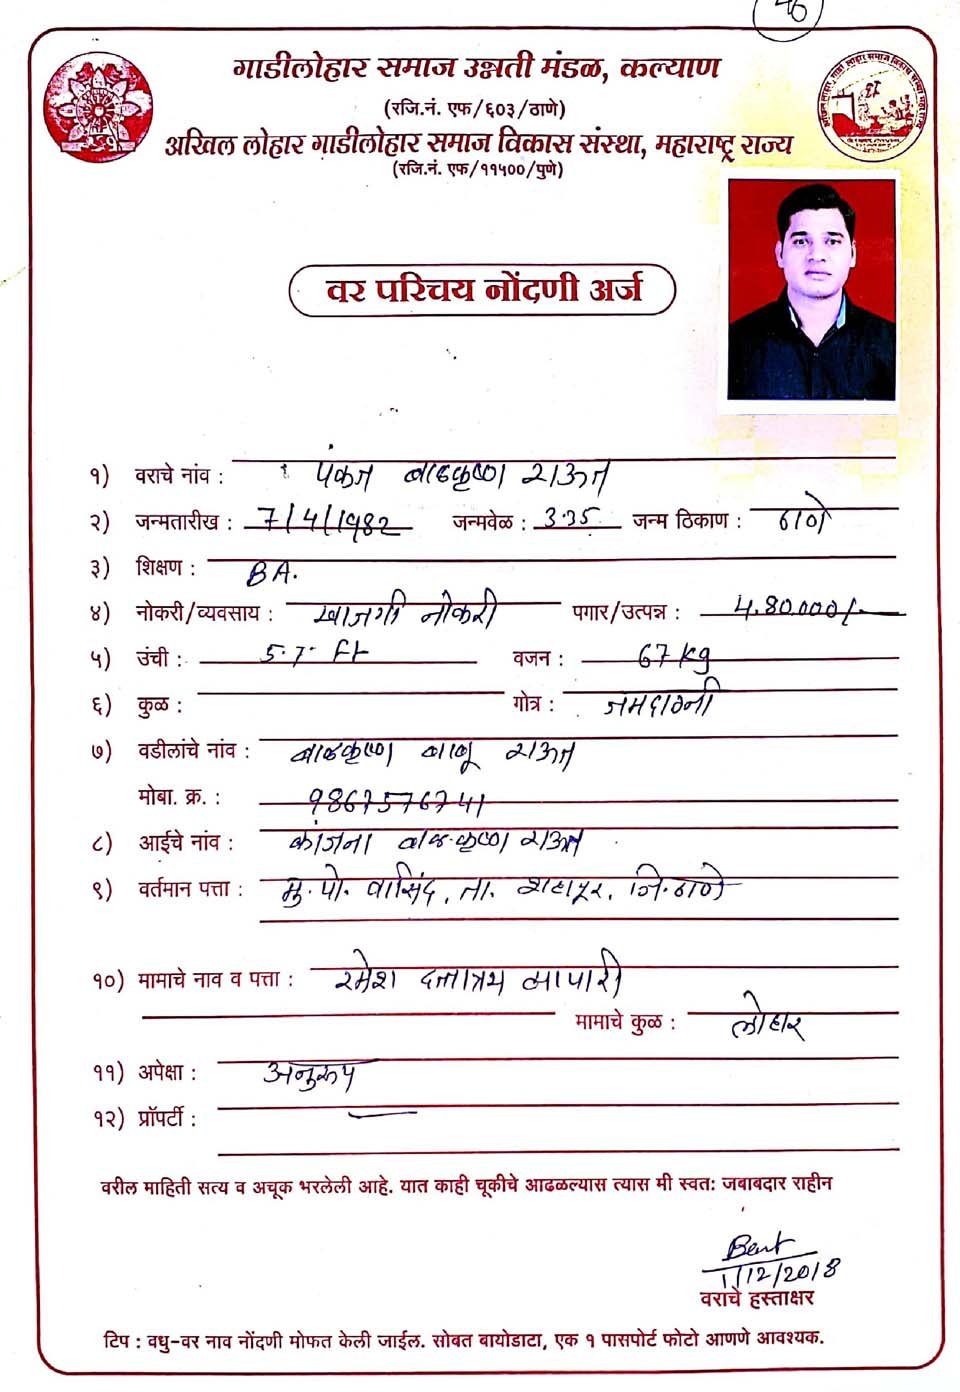 46
गाडीलोहार समाज उन्नती मंडळ, कल्याण
(रजि.नं. एफ/६०३/ठाणे)
अखिल लोहार गाडीलोहार समाज विकास संस्था, महाराष्ट्र राज्य
(रजि.नं. एफ/११५००/पुणे)
वर परिचय नोंदणी अर्ज
१) वराचे नांव : पंकज बाळकृष्ण राऊत
२) जन्मतारीख : 7/4/1982 जन्मवेळ : 3.35 जन्म ठिकाण : ठाणे
३) शिक्षण : BA.
४) नोकरी/व्यवसाय : खाजगी नोकरी पगार/उत्पन्न : 4.80.000/-
५) उंची : 5.7. Ft वजन : 67 kg
६) कुळ : गोत्र : जमदाग्नी
७) वडीलांचे नांव : बाळकृष्ण बाबू राऊत
मोबा. क्र. : 9867576741
८) आईचे नांव : बाळकृष्ण राऊत
९) वर्तमान पत्ता : मु. पो. वासिंद, ता. शहापूर, जि. ठाणे
१०) मामाचे नाव व पत्ता : रमेश दत्तात्रय
मामाचे कुळ : लोहार
११) अपेक्षा : अनुरूप
१२) प्रॉपर्टी : —
वरील माहिती सत्य व अचूक भरलेली आहे. यात काही चूकीचे आढळल्यास त्यास मी स्वतः जबाबदार राहीन
1/12/2018
वराचे हस्ताक्षर
टिप : वधु-वर नाव नोंदणी मोफत केली जाईल. सोबत बायोडाटा, एक १ पासपोर्ट फोटो आणणे आवश्यक.